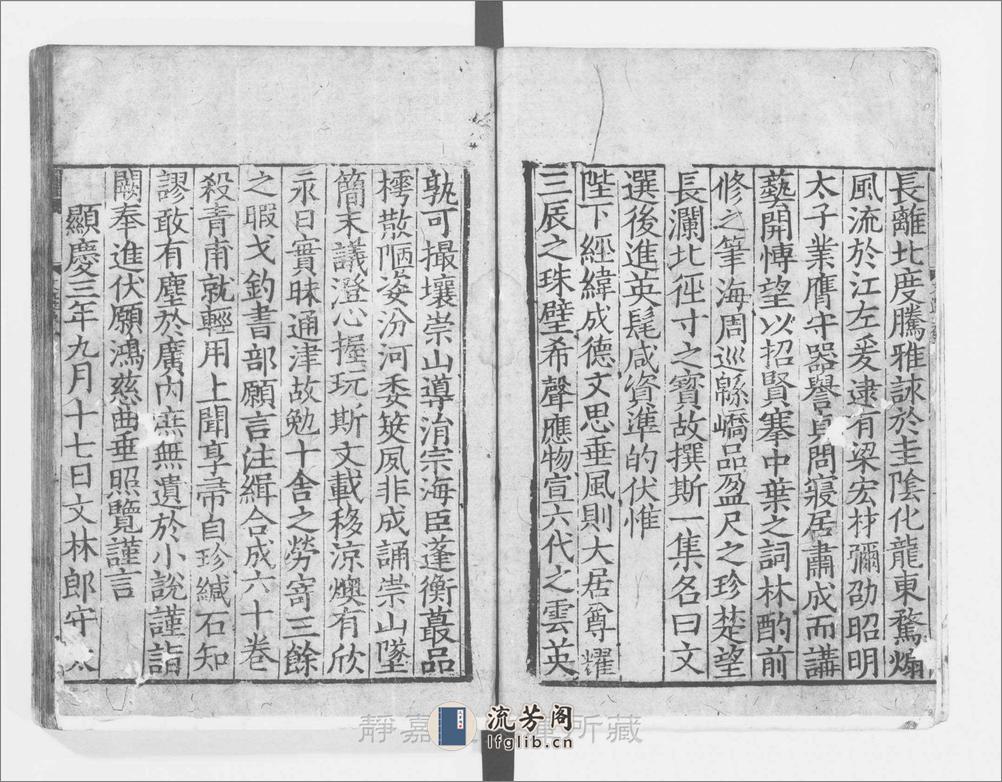 長離北度騰雅詠於圭隂化龍東騖煽
風流於江左爰逮有梁宏材彌劭昭明
太子業膺守器譽貞問寢居肅成而講
藝開慱望以招賢搴中葉之詞林酌前
修之筆海周巡緜嶠品盈尺之珍楚望
長瀾北徑寸之寳故撰斯一集名曰文
選後進英髦咸資準的伏惟
陛下經緯成德文思垂風則大居尊耀
三辰之珠璧希聲應物宣六代之雲英
孰可撮壤崇山導涓宗海臣蓬衡蕞品
樗散陋姿汾河委筴夙非成誦崇山墜
簡末議澄心握玩斯文載移涼燠有欣
永日實昧通津故勉十舎之勞寄三餘
之暇弋釣書部願言注緝合成六十卷
殺青甫就輕用上聞享帚自珍緘石知
謬敢有塵於廣内庶無遺於小說謹詣
闕奉進伏願鴻慈曲垂照覽謹言
顯慶三年九月十七日文林郎守太
靜嘉 所藏
流芳阁
lfglib.cn